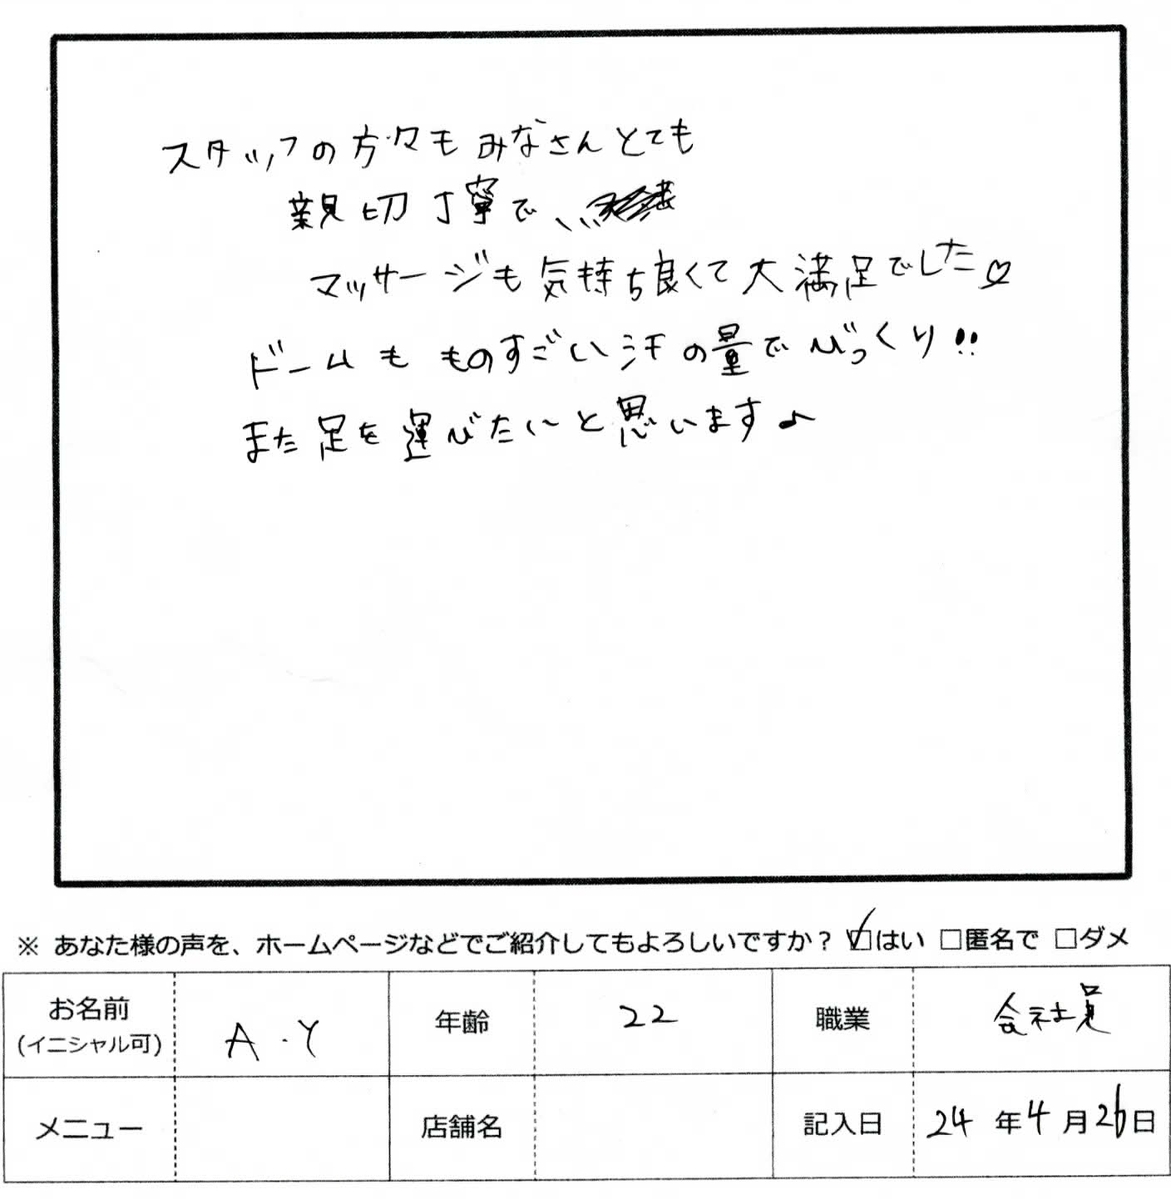 スタッフの方々もみなさんとても
親切丁寧で、
マッサージも気持ち良くて大満足でした♡
ドームも ものすごい汗の量でびっくり!!
また足を運びたいと思います♪
※ あなた様の声を、ホームページなどでご紹介してもよろしいですか？ ☑はい □匿名で □ダメ
お名前 (イニシャル可) A.Y 年齢 22 職業 会社員
メニュー 店舗名 記入日 24年4月26日